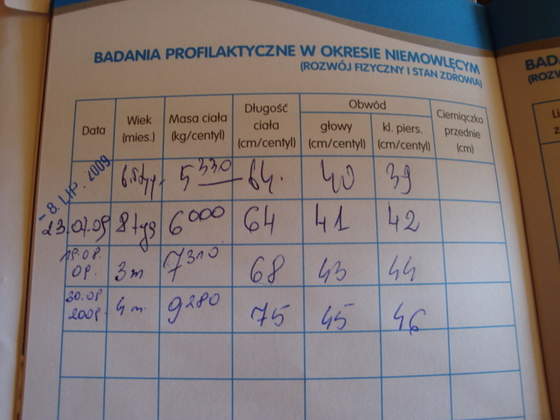 BADANIA PROFILAKTYCZNE W OKRESIE NIEMOWLĘCYM
(ROZWÓJ FIZYCZNY I STAN ZDROWIA)
Data Wiek (mies.) Masa ciała (kg/centyl) Długość ciała (cm/centyl) Obwód głowy (cm/centyl) kl. piers. (cm/centyl) Ciemiączko przednie (cm)
-8. LIP. 2009 5330 64. 40 39
23.07.09 8 tyg 6000 64 41 42
19.08.09. 3m 7310 68 43 44
30.09 2009. 4 m. 9280 75 45 46
BAD
(ROZW